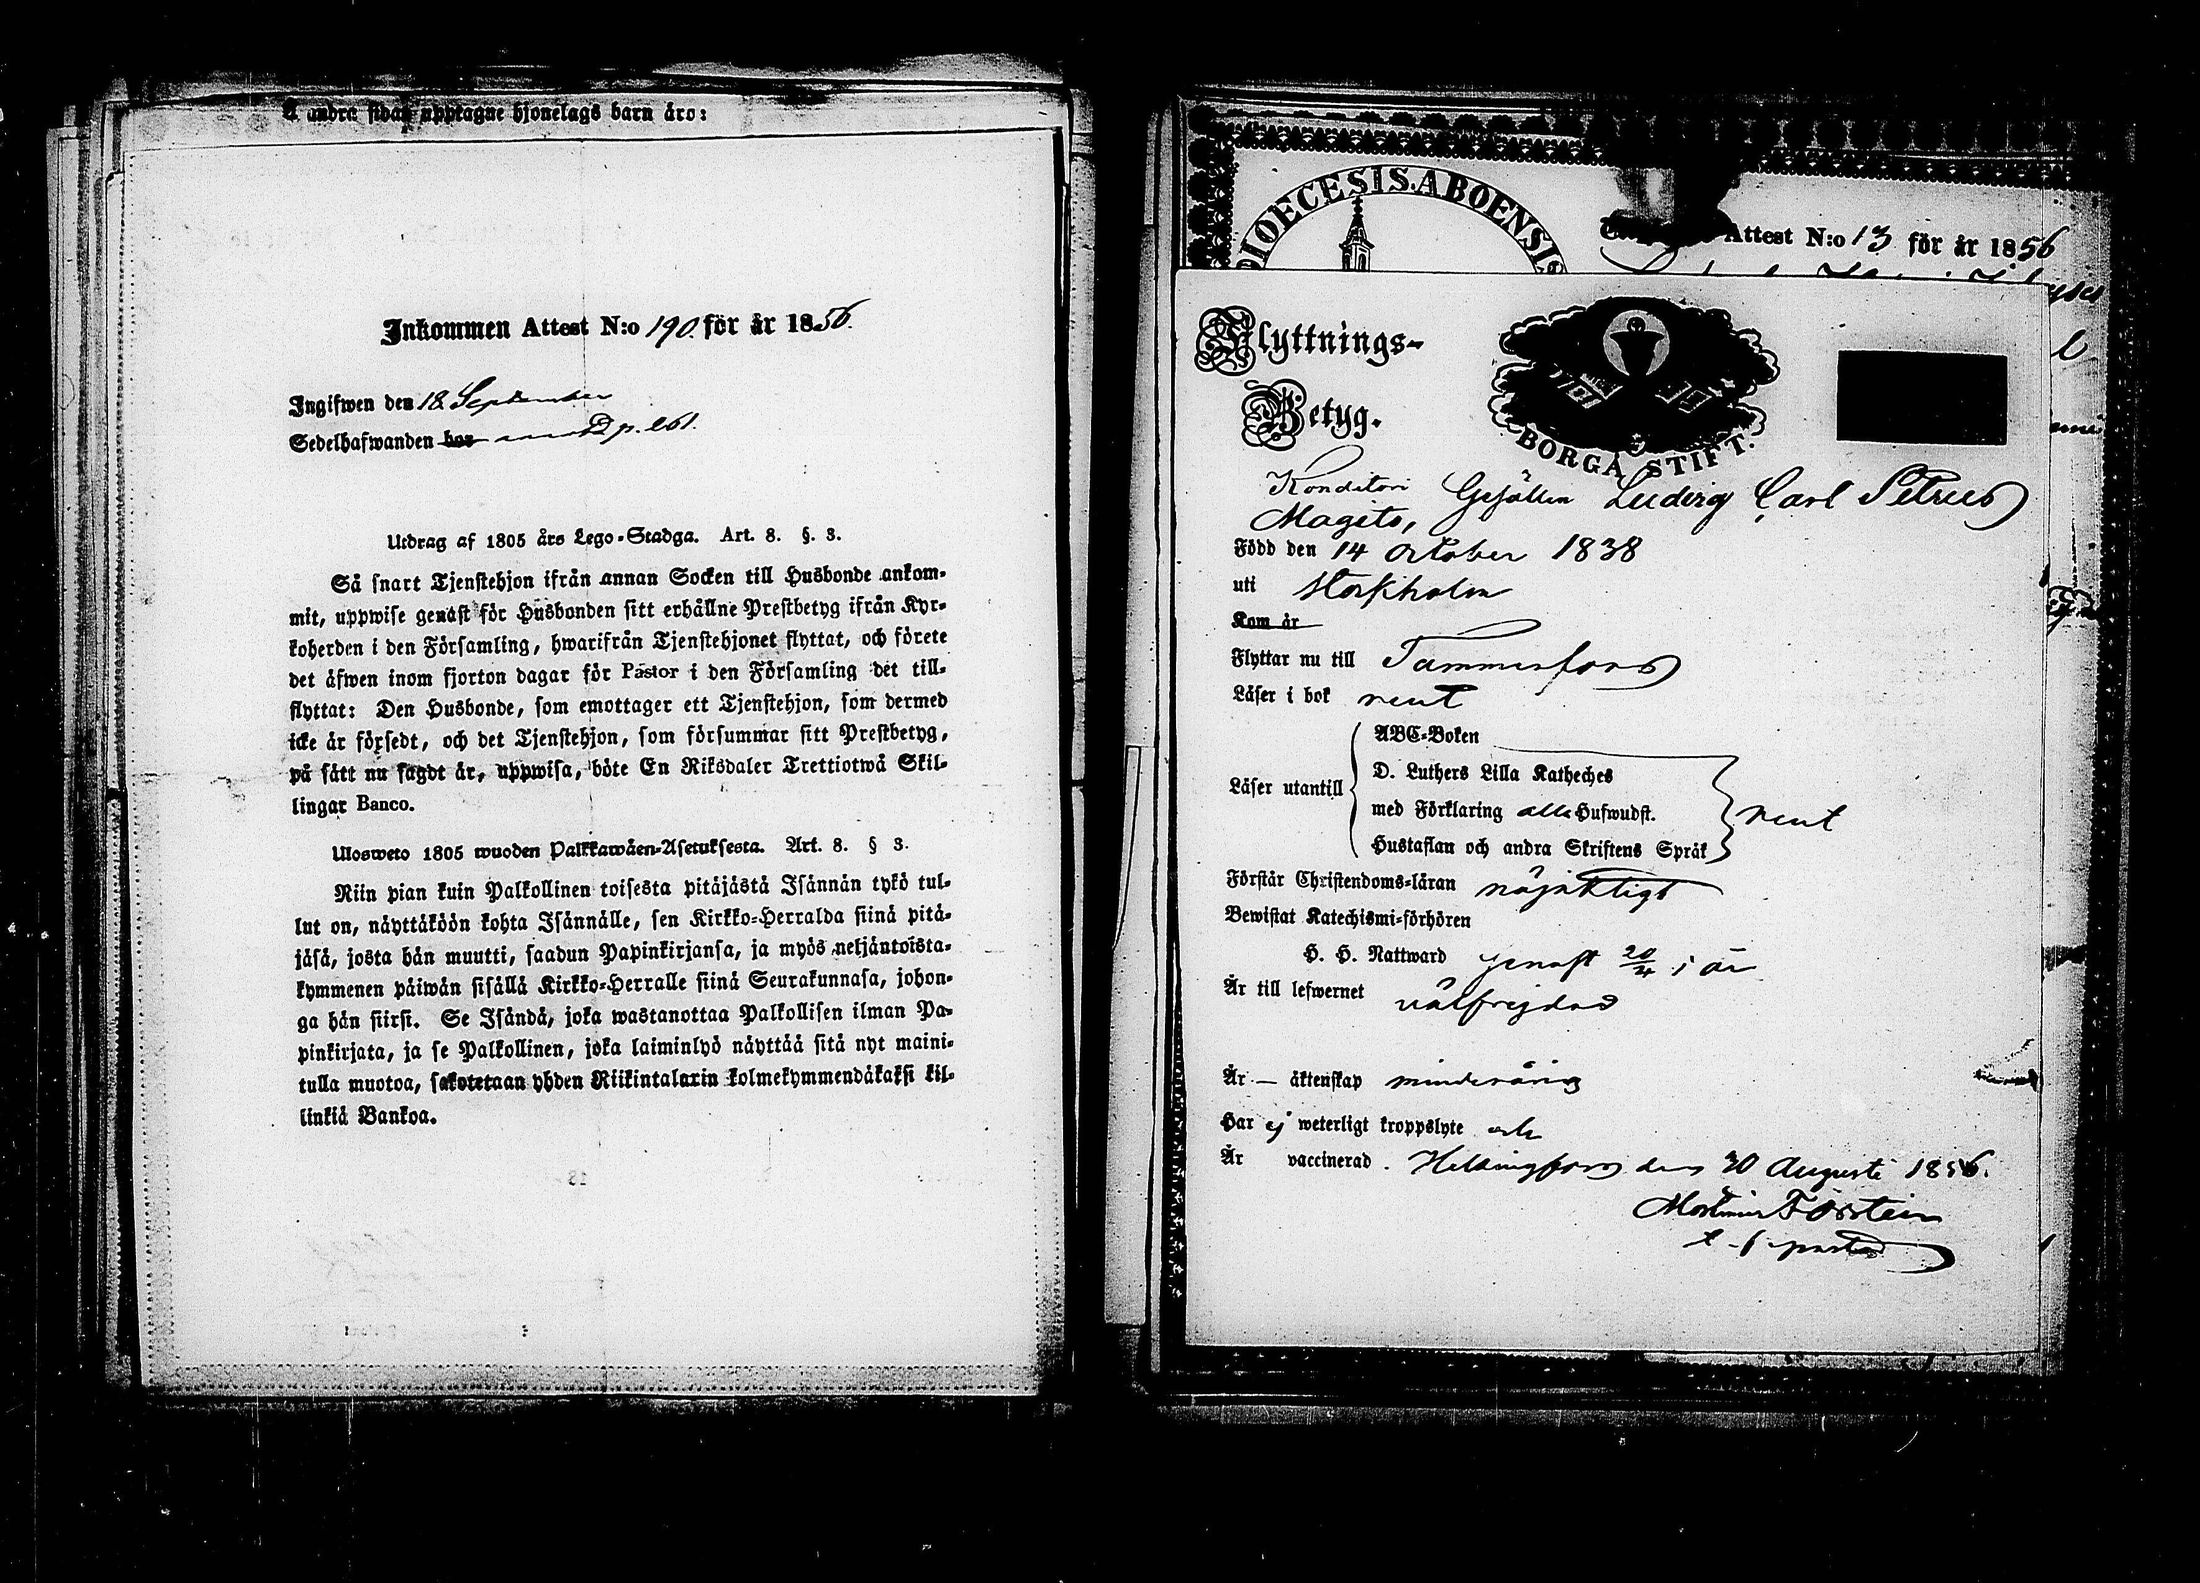 A andra sidan upptagne hjonelags barn äro:
Inkommen Attest N:o 190. för år 1856.
Ingifwen den 18 September
Sedelhafwanden bor p. 261.
Utdrag af 1805 års Lego-Stadga. Art. 8. §. 3.
Så snart Tjenstehjon ifrån annan Socken till Husbonde ankom-
mit, uppwise genast för Husbonden sitt erhållne Prestbetyg ifrån Kyr-
koherden i den Församling, hwarifrån Tjenstehjonet flyttat, och förete
det äfwen inom fjorton dagar för Pastor i den Församling det till-
flyttat: Den Husbonde, som emottager ett Tjenstehjon, som dermed
icke är försedt, och det Tjenstehjon, som försummar sitt Prestbetyg,
på sätt nu sagdt är, uppwisa, böte En Riksdaler Trettiotwå Skil-
lingar Banco.
Ulosweto 1805 wuoden Palkkawäen-Asetuksesta. Art. 8. § 3.
Niin pian kuin Palkollinen toisesta pitäjästä Isännän tykö tul-
lut on, näyttäköön kohta Isännälle, sen Kirkko-Herralda siinä pitä-
jäsä, josta hän muutti, saadun Papinkirjansa, ja myös neljäntoista-
kymmenen päiwän sisällä Kirkko-Herralle siinä Seurakunnasa, johon-
ga hän siirsi. Se Isändä, joka wastanottaa Palkollisen ilman Pa-
pinkirjata, ja se Palkollinen, joka laiminlyö näyttää sitä nyt maini-
tulla muotoa, sakotetaan yhden Riikintalarin kolmekymmendäkaksi kil-
linkiä Bankoa.
DIOECESIS.ABOENSIS
Attest N:o 13 för år 1856
Flyttnings-
Betyg.
BORGÅ STIFT.
Konditori Gesällen Ludvig Carl Petrus
Magito,
Född den 14 October 1838
uti Stockholm
Kom år
Flyttar nu till Tammerfors
Läser i bok rent
ABC-Boken
Läser utantill
D. Luthers Lilla Katheches
med Förklaring alla Hufwudst. rent
Hustaflan och andra Skriftens Språk
Förstår Christendoms-läran nöjaktigt
Bewistat Katechismi-förhören
H. H. Nattward senast 20/4 i år
Är till lefwernet välfrejdad
Är — äktenskap minderårig
Har ej weterligt kroppslyte och
Är vaccinerad. Helsingfors den 30 Augusti 1856.